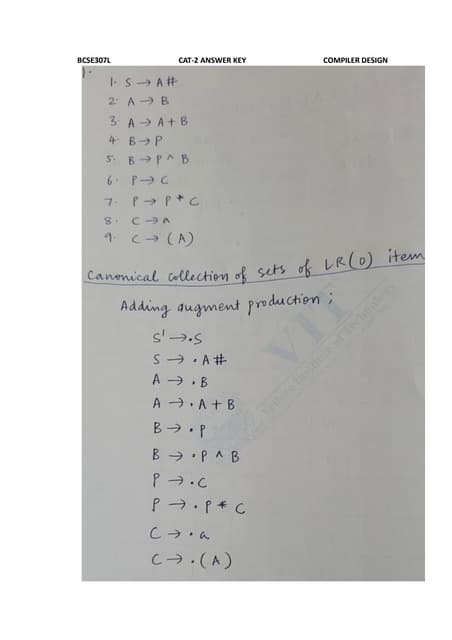 BCSE307L CAT-2 ANSWER KEY COMPILER DESIGN
1.
1. S → A#
2. A → B
3. A → A + B
4. B → P
5. B → P ^ B
6. P → C
7. P → P * C
8. C → a
9. C → (A)
Canonical collection of sets of LR(0) item
Adding augment production ;
S' → .S
S → . A #
A → . B
A → . A + B
B → . P
B → . P ^ B
P → . C
P → . P * C
C → . a
C → . (A)
VIT